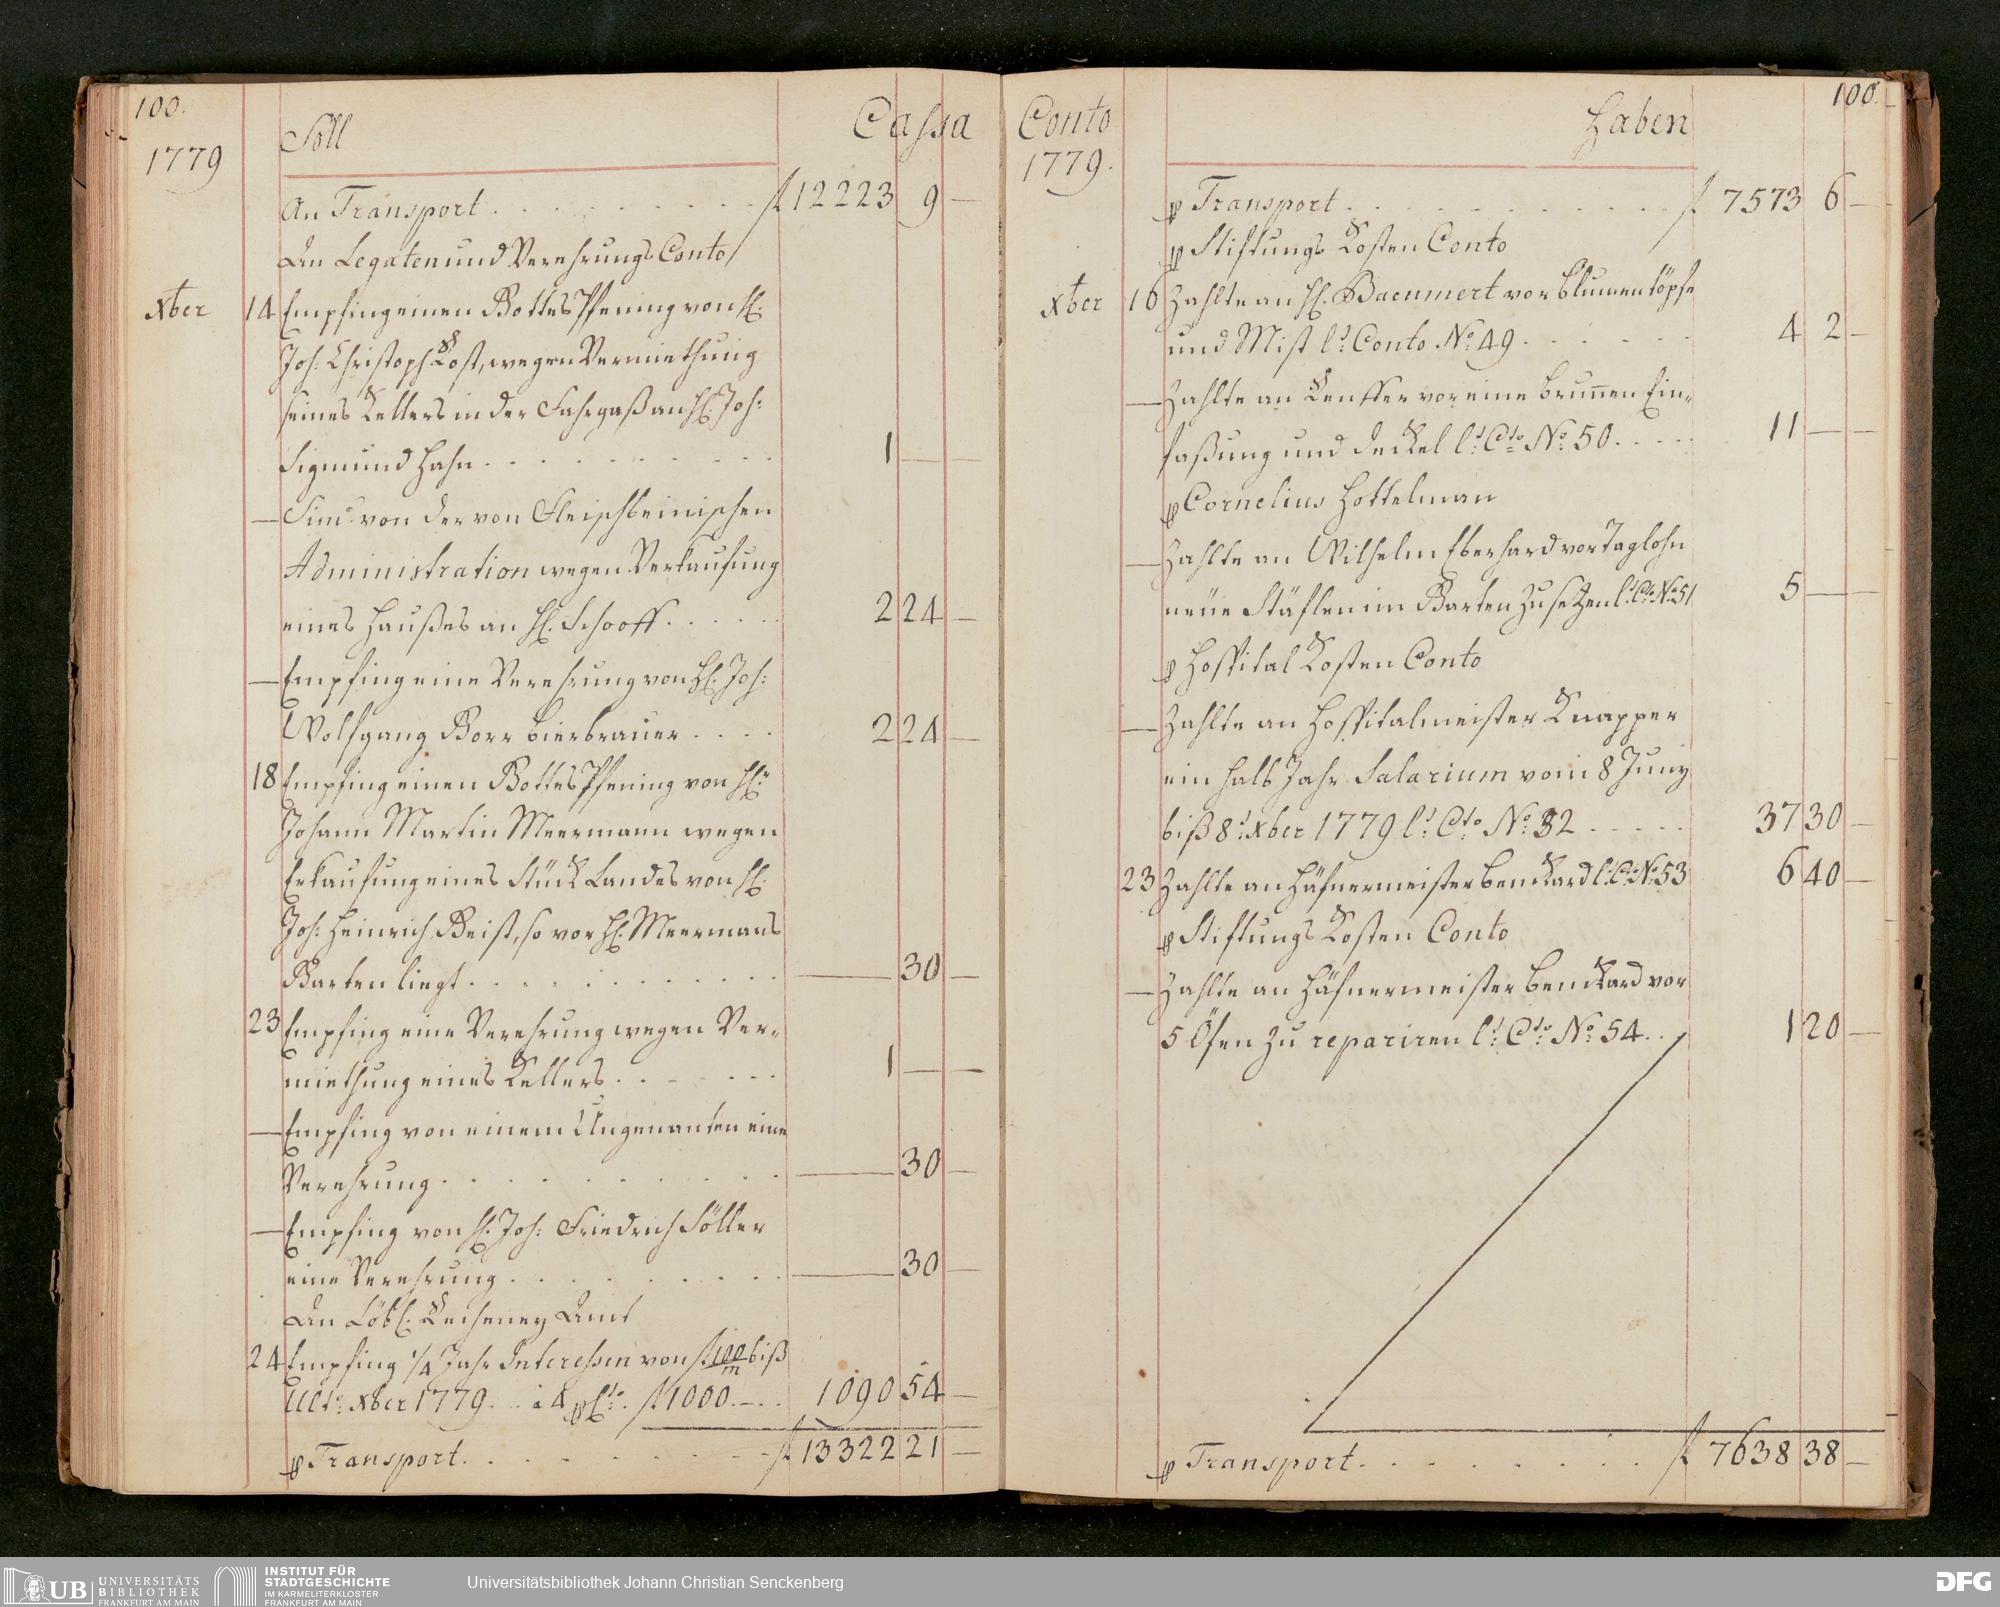 100.
Soll
Cassa
1779
An Transport . . . . . . . . . f 12223 9 —
An Legaten und Verehrungs Conto
xber 14 Empfing einen Gottes Pfening von H.
Joh: Christoph Kost, wegen Vermiethung
seines Kellers in der Fahrgaß an H. Joh:
Sigmund Hahn . . . . . . . . . 1 — —
— Simi: von der von Fleischbeinischen
Administration wegen Verkaufung
eines Haußes an H. Schooff . . . . . 2 24 —
— Empfing eine Verehrung von H. Joh:
Wolfgang Gorr Bierbrauer . . . . 2 24 —
18 Empfing einen Gottes Pfening von H:
Johann Martin Meermann wegen
Erkaufung eines Stück Landes von H.
Joh: Heinrich Geist, so vor H. Meermans
Garten liegt . . . . . . . . . — 30 —
23 Empfing eine Verehrung wegen Ver-
miethung eines Kellers . . . . . . 1 — —
— Empfing von einem Ungenanten eine
Verehrung . . . . . . . . . — 30 —
— Empfing von H. Joh: Friedrich Söller
eine Verehrung . . . . . . . . — 30 —
An Löbl. Recheney Amt
24 Empfing 1/4 Jahr Interessen von f 100/m biß
Ult: xber 1779. . . à 4 pCto. f 1000. — . . 1090 54 —
p Transport . . . . . . . . f 13322 21 —
Conto
Haben
100.
1779.
p Transport . . . . . . . . . . f 7573 6 —
p Stiftungs Kosten Conto
xber 16 Zahlte an H. Baenmert vor Blumentöpfe
und Mist lt. Conto No. 49 . . . . . . 4 2 —
— Zahlte an Keuffer vor eine Brunnen Ein-
faßung und deckel lt. Cto. No. 50 . . . . 11 — —
p Cornelius Hottelman
— Zahlte an Wilhelm Eberhard vor Taglohn
neüe Stäflen im Garten zu setzen lt. Cto. No. 51 5 — —
p Hospital Kosten Conto
— Zahlte an Hospitalmeister Knapper
ein halb Jahr Salarium vom 8 Juny
biß 8t. xber 1779 lt. Cto. No. 32 . . . . . 37 30 —
23 Zahlte an Häfnermeister Benckard lt. Cto. No. 53 6 40 —
p Stiftungs Kosten Conto
— Zahlte an Häfnermeister Benckard vor
5 Öfen zu repariren lt. Cto. No. 54 . . 1 20 —
p Transport . . . . . . . . . f 7638 38 —
UB UNIVERSITÄTS
BIBLIOTHEK
FRANKFURT AM MAIN
INSTITUT FÜR
STADTGESCHICHTE
IM KARMELITERKLOSTER
FRANKFURT AM MAIN
Universitätsbibliothek Johann Christian Senckenberg
DFG